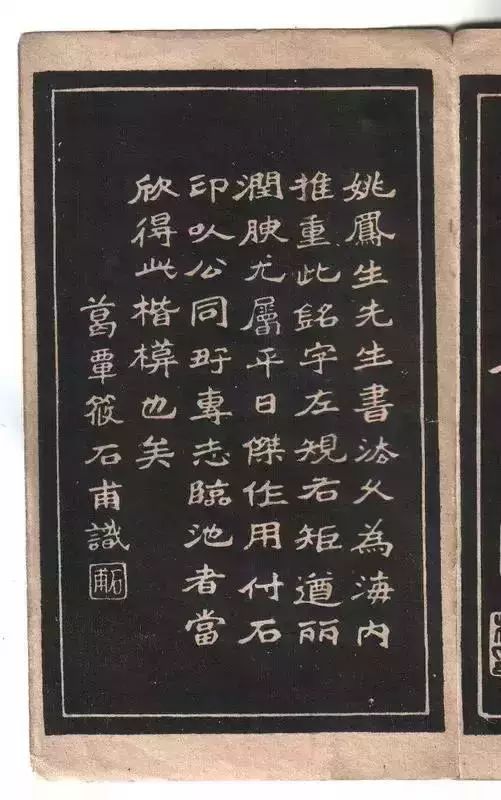 姚鳳生先生書法久為海内
推重此銘字左規右矩遒丽
潤腴尤屬平日傑作用付石
印以公同好專志臨池者當
欣得此楷模也矣
葛覃筱石甫識
石甫